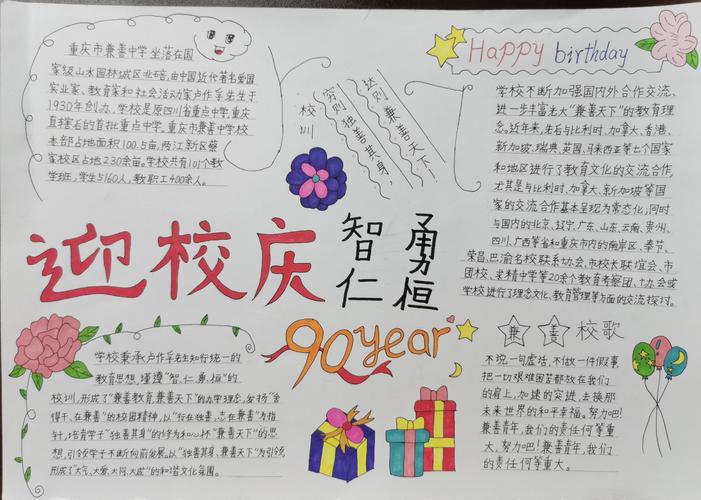 重庆市兼善中学坐落在国
家级山水园林城区北碚,由中国近代著名爱国
实业家、教育家和社会活动家卢作孚先生于
1930年创办。学校是原四川省重点中学,重庆
直辖后的首批重点中学。重庆市兼善中学校
本部占地面积100.5亩,两江新区蔡
家校区占地230余亩。学校共有101个教
学班,学生5160人,教职工400余人。
校训
穷则独善其身,
达则兼善天下
Happy birthday
学校不断加强国内外合作交流、
进一步丰富光大“兼善天下”的教育理
念。近年来,先后与比利时、加拿大、香港、
新加坡、瑞典、英国、马来西亚等七个国家
和地区进行了教育文化的交流合作,
尤其是与比利时、加拿大、新加坡等国
家的交流合作基本呈现为常态化;同时
与国内的北京、辽宁、广东、山东、云南、贵州、
四川、广西等省和重庆市内的南岸区、奉节、
荣昌、巴渝名校联系协会、市校长联谊会、市
团校、求精中学等20余个教育考察团、协会或
学校进行了理念文化、教育管理等方面的交流探讨。
迎校庆
智仁
勇恒
90year
学校秉承卢作孚先生知行统一的
教育思想,谨遵“智、仁、勇、恒”的
校训,形成了“兼善教育,兼善天下”的办学理念,发扬“舍
得干、在兼善”的校园精神,以“行在独善,志在兼善”为指
针,培育学子“独善其身”的修为和心怀“兼善天下”的思
想,引领学子不断向前发展。以“独善其身、兼善天下”为引领
形成了“大气、大爱、大同、大成”的和谐文化氛围。
兼善校歌
不说一句虚话,不做一件假事,
把一切艰难困苦都放在我们
的肩上,加速的突进,去换那
未来世界的和平幸福。努力吧!
兼善青年,我们的责任何等重
大,努力吧!兼善青年,我们
的责任何等重大。